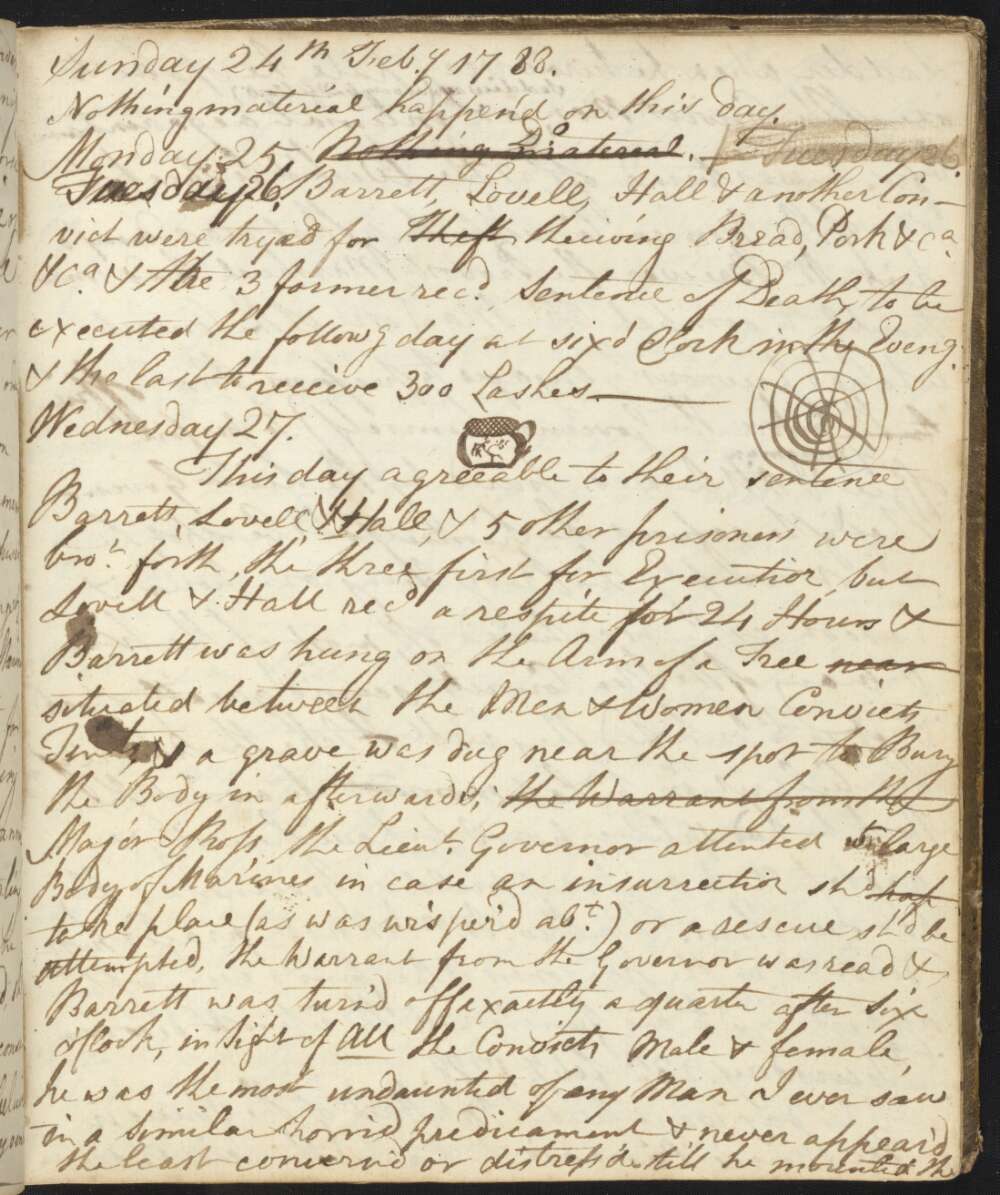 Sunday 24th Feb.y 1788.
Nothing material happen'd on this day.
Monday 25. Nothing Do material. Tuesday 26.
Tuesday 26. Barrett, Lovell, Hall & another Con-
vict were tryed for Theft theiving Bread, Pork &ca
&ca. & the 3 former recd. Sentence of Death, to be
executed the followg day at six o'Clock in the Eveng.
& the last to receive 300 Lashes.
Wednesday 27.
This day agreeable to their sentence
Barrett, Lovell, & Hall, & 5 other prisoners were
bro.t forth, the three first for Execution but
Lovell & Hall recd a respite for 24 Hours &
Barrett was hung on the Arm of a Tree near
situated between the Men & Women Convicts
Tents, & a grave was dug near the spot to Bury
the Body in afterwards; the Warrant from the
Major Ross the Lieut. Governor attented wt. large
Body of Marines in case an insurrection shd hap
take place (as was wisper'd abt.) or a rescue shd be
attempted, the Warrant from the Governor was read &
Barrett was turn'd off exactly a quarter after six
o'Clock, in sight of All the Convicts Male & female,
he was the most undaunted of any Man I ever saw
in a similar horrid predicament & never appear'd
the least concern'd or distress'd till he mounted the